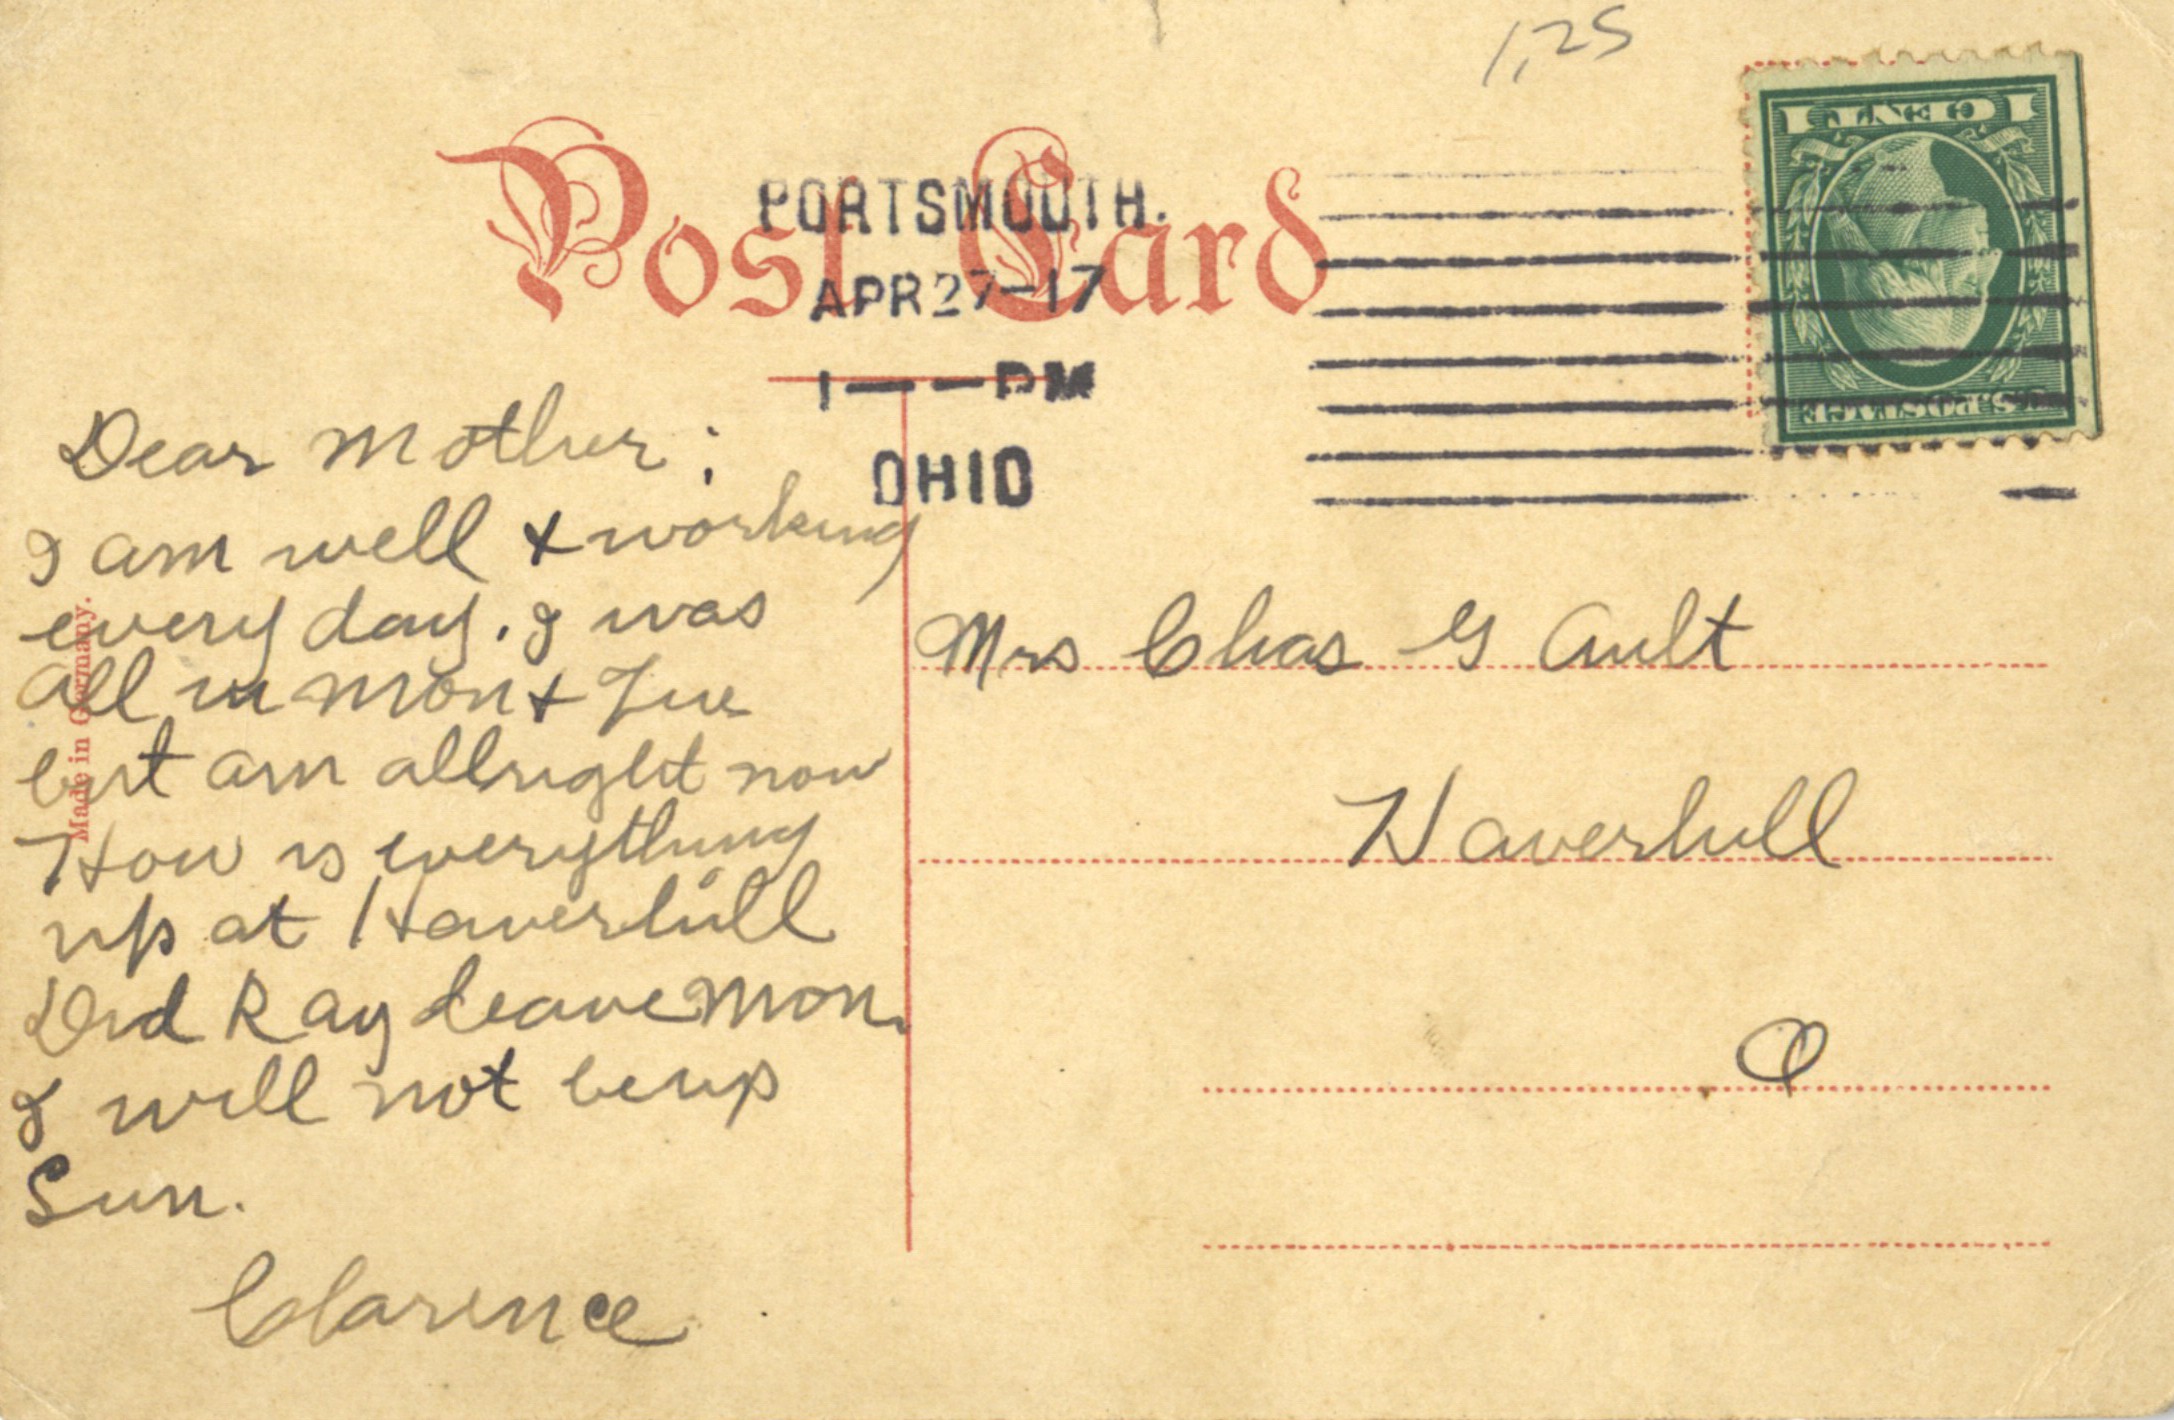 1,25
Post Card
PORTSMOUTH.
APR 27-17
1 — — PM
OHIO
1 CENT 1
U.S. POSTAGE
Made in Germany.
Dear Mother;
I am well & working
every day. I was
all in Mon & Tue
but am allright now
How is everything
up at Haverhill
Did Ray leave Mon.
I will not be up
Sun.
Clarence
Mrs Chas G Ault
Haverhill
O